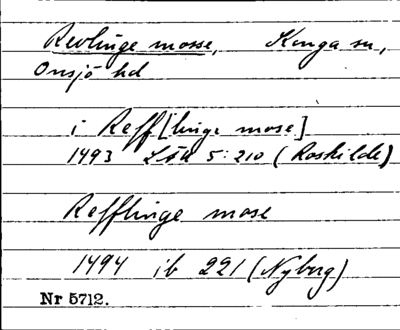 Revlinge mosse, Konga sn,
Onsjö hd
i Reff[linge mose]
1493 5:210 (Roskilde)
Refflinge mose
1494 ib 221 (Nyborg)
Nr 5712.